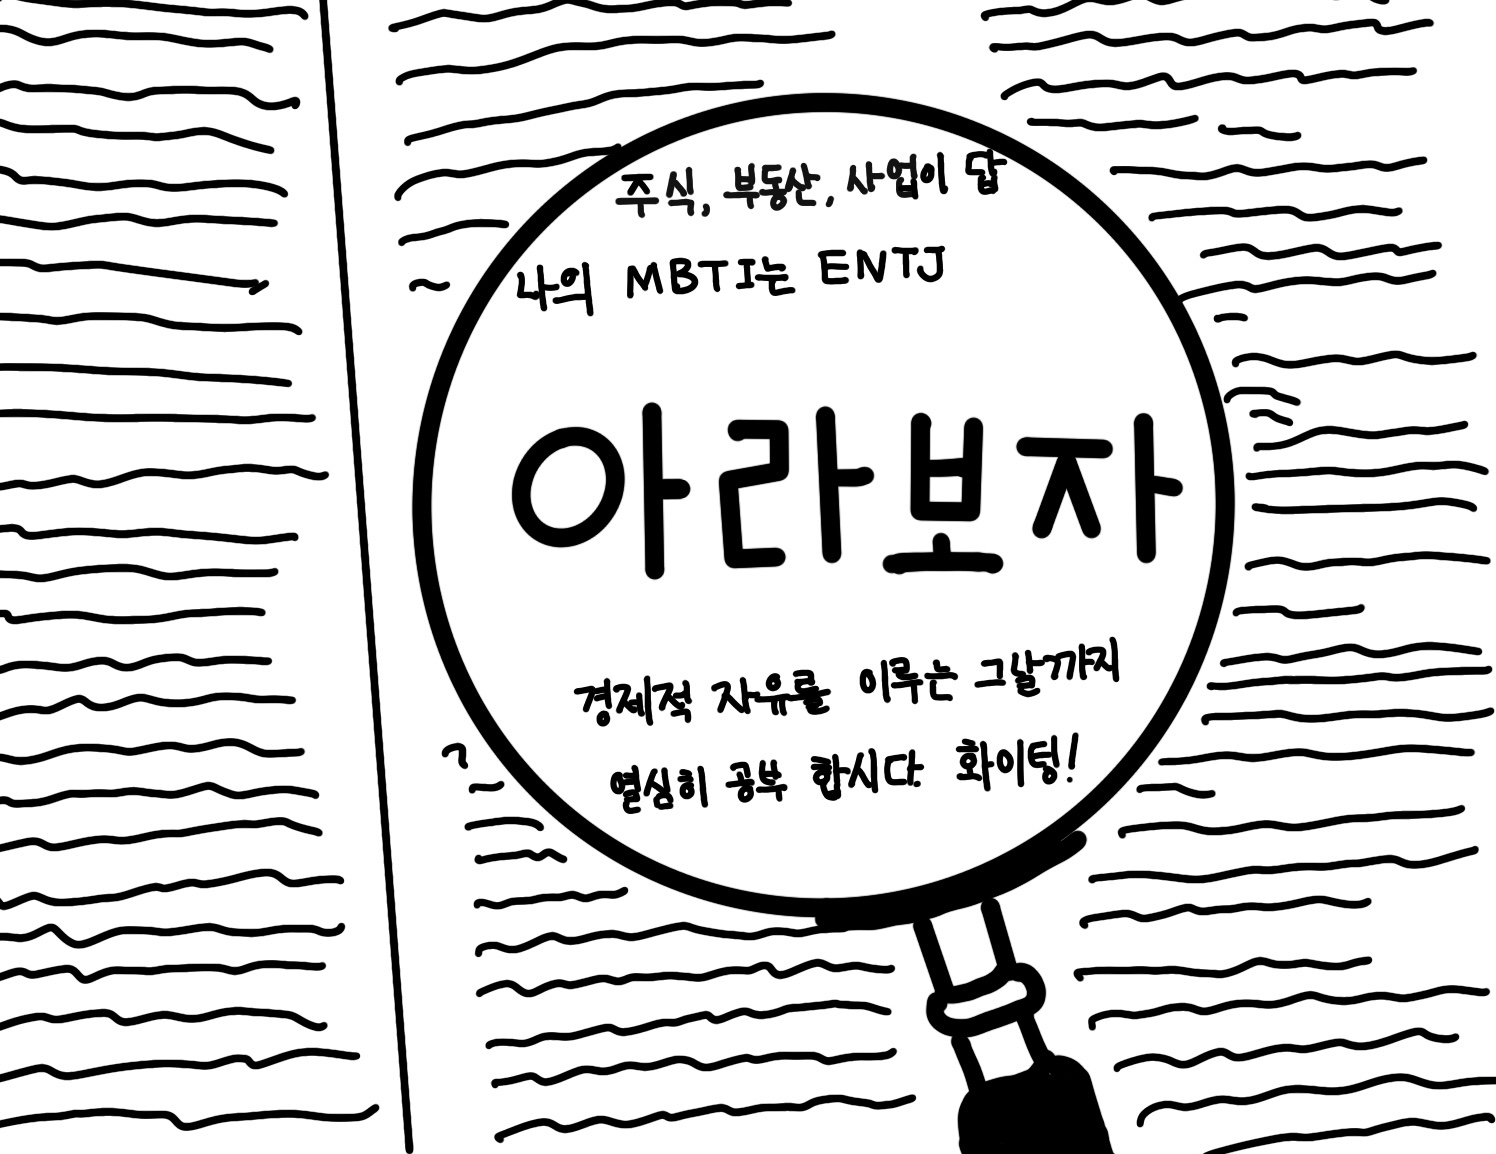 주식, 부동산, 사업이 답
나의 MBTI는 ENTJ
아라보자
경제적 자유를 이루는 그날까지
열심히 공부 합시다. 화이팅!